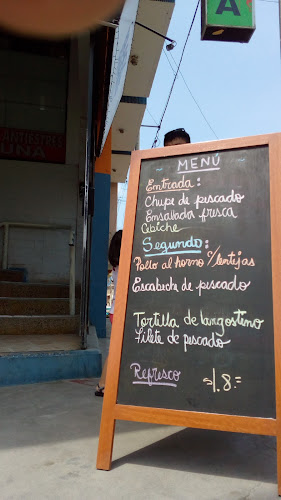 A
ANTIESTRES
UNA
MENÚ
Entrada:
Chupe de pescado
Ensalada fresca
Cebiche
Segundo:
Pollo al horno c/lentejas
Escabeche de pescado
Tortilla de langostino
Filete de pescado
Refresco
s/.8=